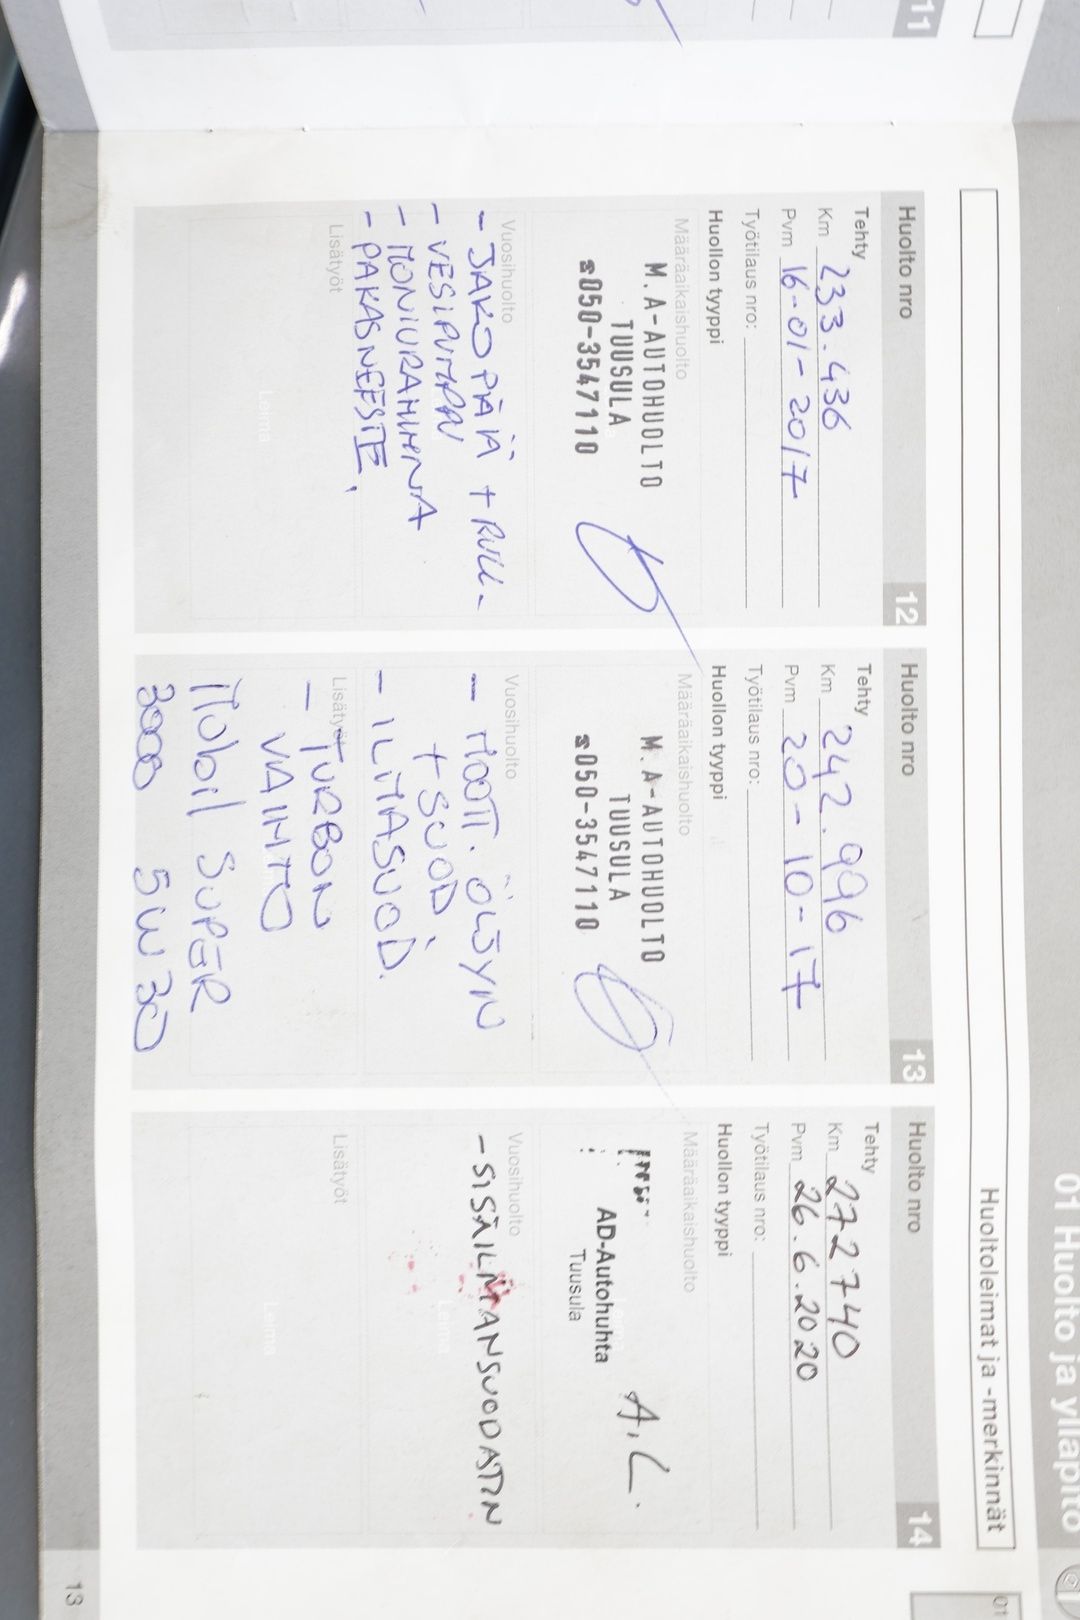 11
01 Huolto ja ylläpito
01
Huoltoleimat ja -merkinnät
Huolto nro 12
Tehty
Km 233.436
Pvm 16-01-2017
Työtilaus nro:
Huollon tyyppi
Määräaikaishuolto
M.A-AUTOHUOLTO
TUUSULA
☎050-3547110
Vuosihuolto
- JAKOPÄÄ + RULL-
- VESIPUMPPU
- MONIURAHIHNA
- PAKASNESTE,
Lisätyöt
Leima
Huolto nro 13
Tehty
Km 242.996
Pvm 20-10-17
Työtilaus nro:
Huollon tyyppi
Määräaikaishuolto
M.A-AUTOHUOLTO
TUUSULA
☎050-3547110
Vuosihuolto
- MOOTT. ÖLJYN
+ SUOD.
- ILMASUOD.
Lisätyöt
- TURBON
VAIHTO
Leima
MObil SUPER
3000 5W30
Huolto nro 14
Tehty
Km 272740
Pvm 26.6.2020
Työtilaus nro:
Huollon tyyppi
Määräaikaishuolto
AD-Autohuhta
Tuusula
A.L.
Leima
Vuosihuolto
- SISÄILMANSUODATIN
Leima
Lisätyöt
Leima
13